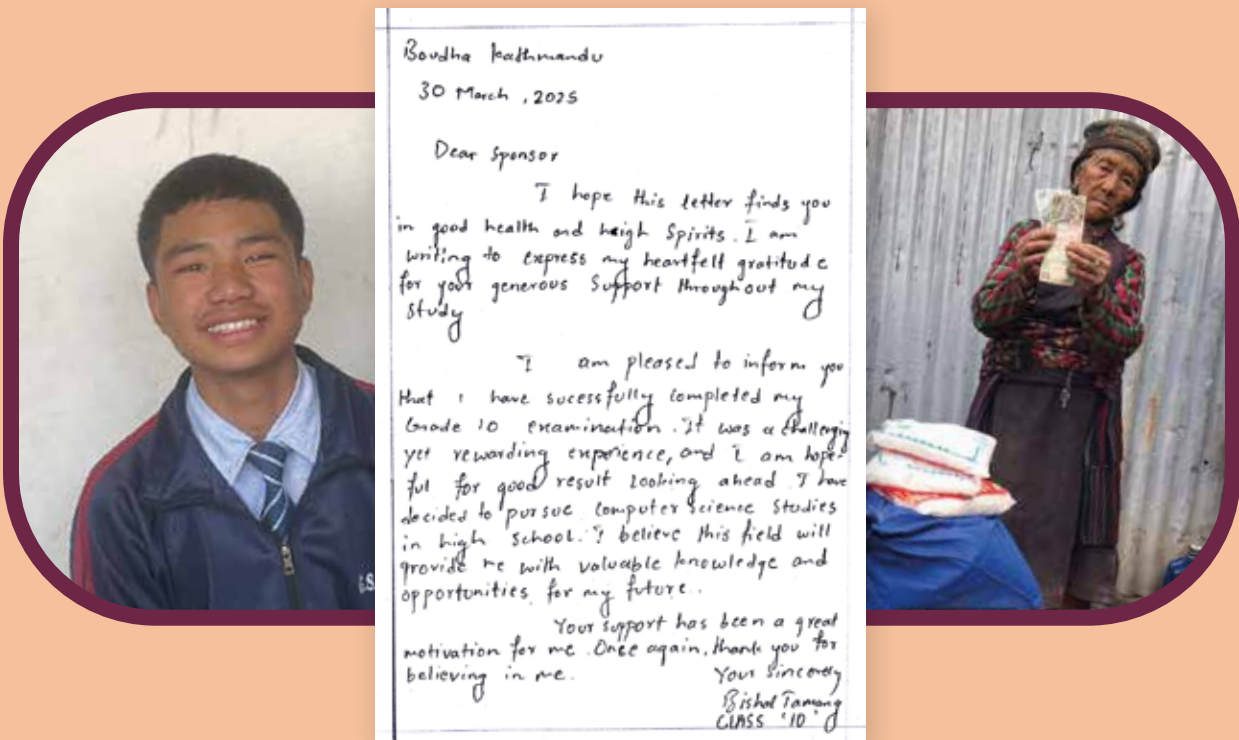 Boudha Kathmandu
30 March , 2025
Dear Sponsor
I hope this letter finds you
in good health and heigh Spirits. I am
writing to express my heartfelt gratitude
for your generous Support throughout my
Study
I am pleased to inform you
that I have sucessfully completed my
Grade 10 examination. It was a challenging
yet rewarding experience, and I am hope-
ful for good result Looking ahead. I have
decided to pursue Computer Science Studies
in high School. I believe this field will
provide me with valuable knowledge and
opportunities for my future..
Your support has been a great
motivation for me. Once again, thank you for
believing in me.
Your Sincerely
Bishal Tamang
CLASS '10'